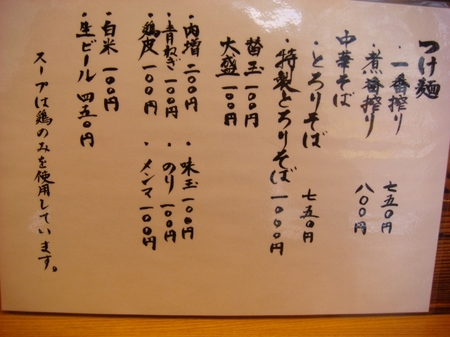 つけ麺
・一番搾り 七五〇円
・煮番搾り 八〇〇円
中華そば
・とろりそば 七五〇円
・特製とろりそば 一〇〇〇円
替玉 一〇〇円
大盛
・肉増 二〇〇円 ・味玉 一〇〇円
・青ねぎ 一〇〇円 ・のり 一〇〇円
・鶏皮 一〇〇円 ・メンマ 一〇〇円
・白米 一〇〇円
・生ビール 四五〇円
スープは鶏のみを使用しています。